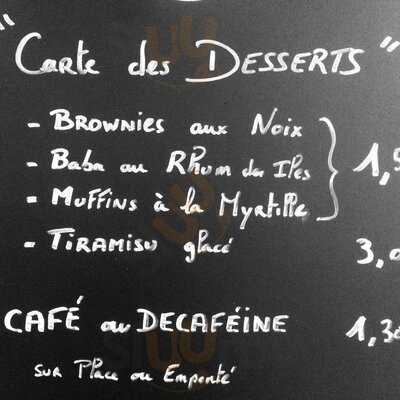 " Carte des DESSERTS "
- BROWNIES aux Noix
- Baba au Rhum des Iles } 1,5
- MUFFINS à la Myrtille
- TIRAMISU glacé 3,0
CAFÉ ou DECAFÉINE 1,30
SUR Place ou Emporté